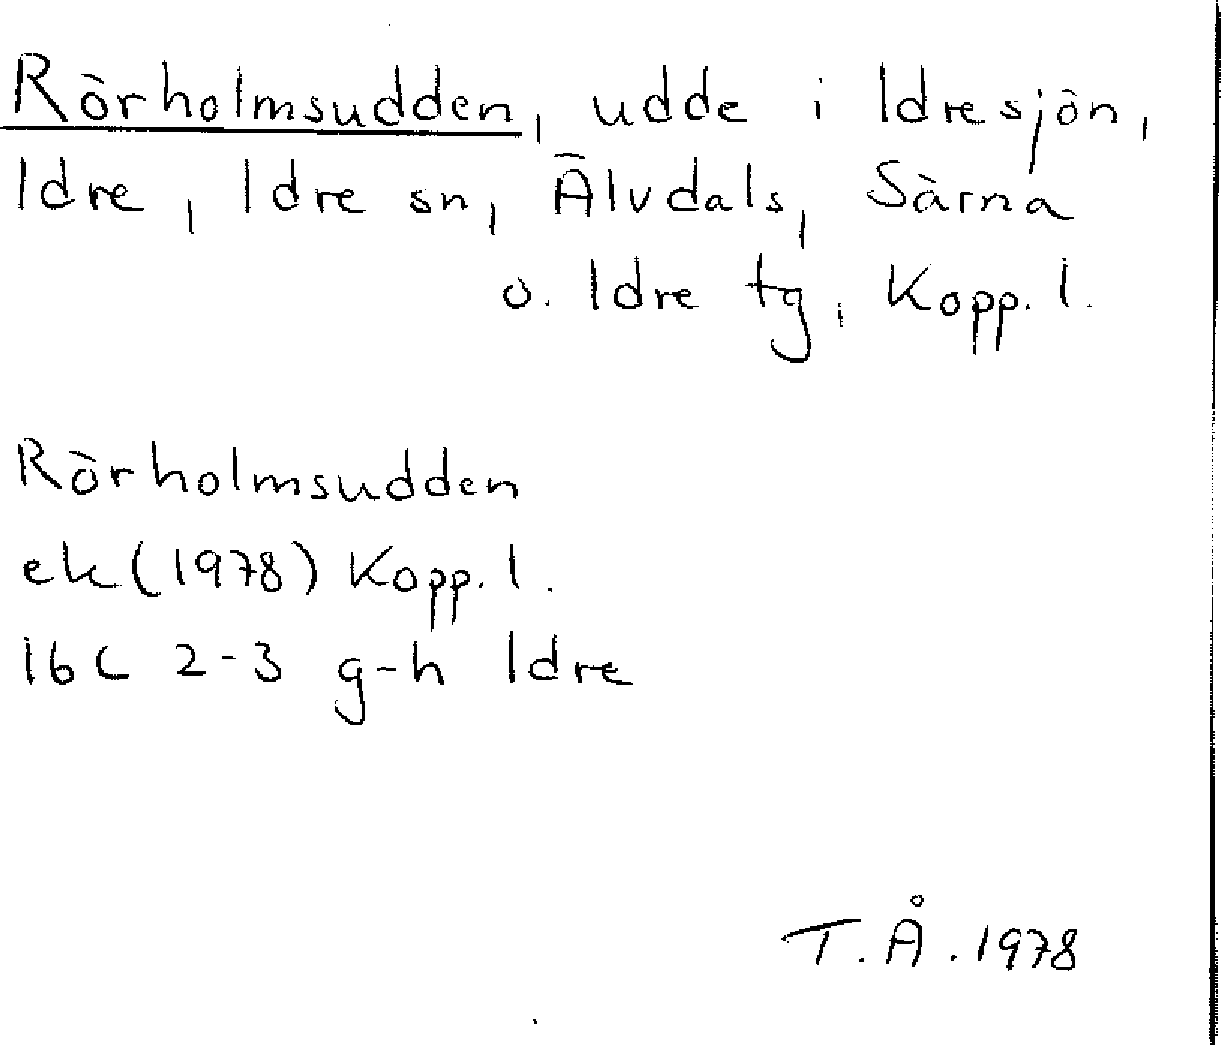 Rörholmsudden, udde i Idresjön,
Idre, Idre sn, Älvdals, Särna
o. Idre tg, Kopp. l.
Rörholmsudden
ek (1978) Kopp. l.
16C 2-3 g-h Idre
T.Å. 1978